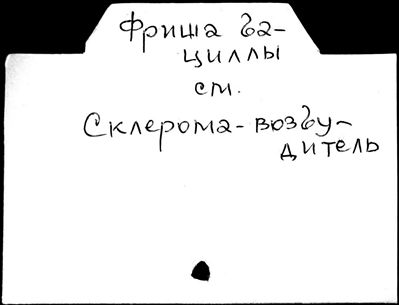 Фриша ба-
циллы
см.
Склерома-возбу-
дитель